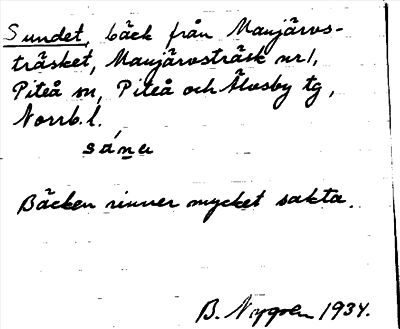 Sundet, bäck från Manjärvs-
träsket, Manjärvsträsk nr 1,
Piteå sn, Piteå och Älvsby tg,
Norrb. l.
Bäcken rinner mycket sakta.
B. Nygren 1934.